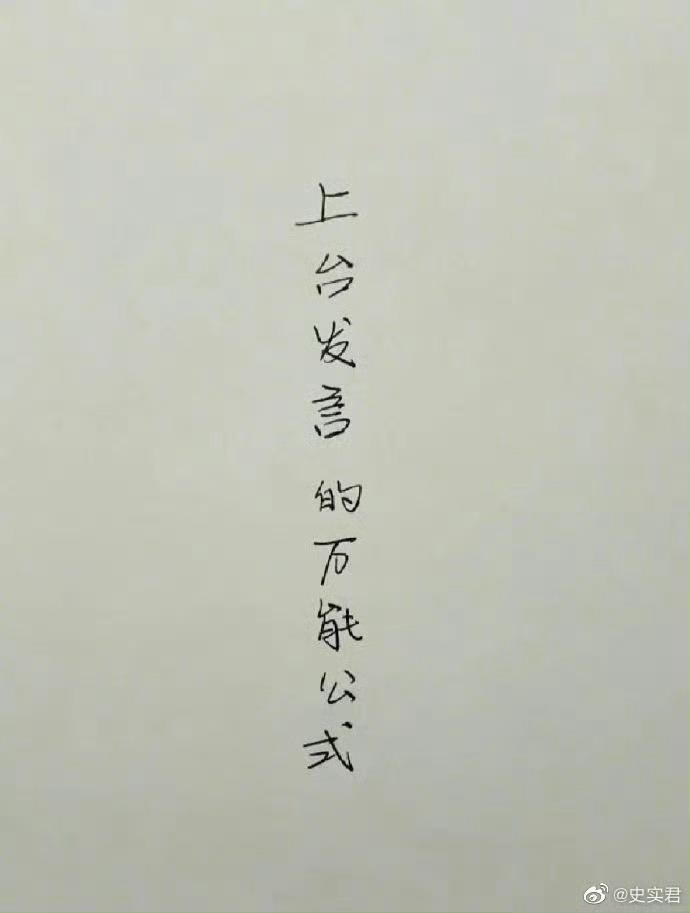 上台发言的万能公式
@史实君